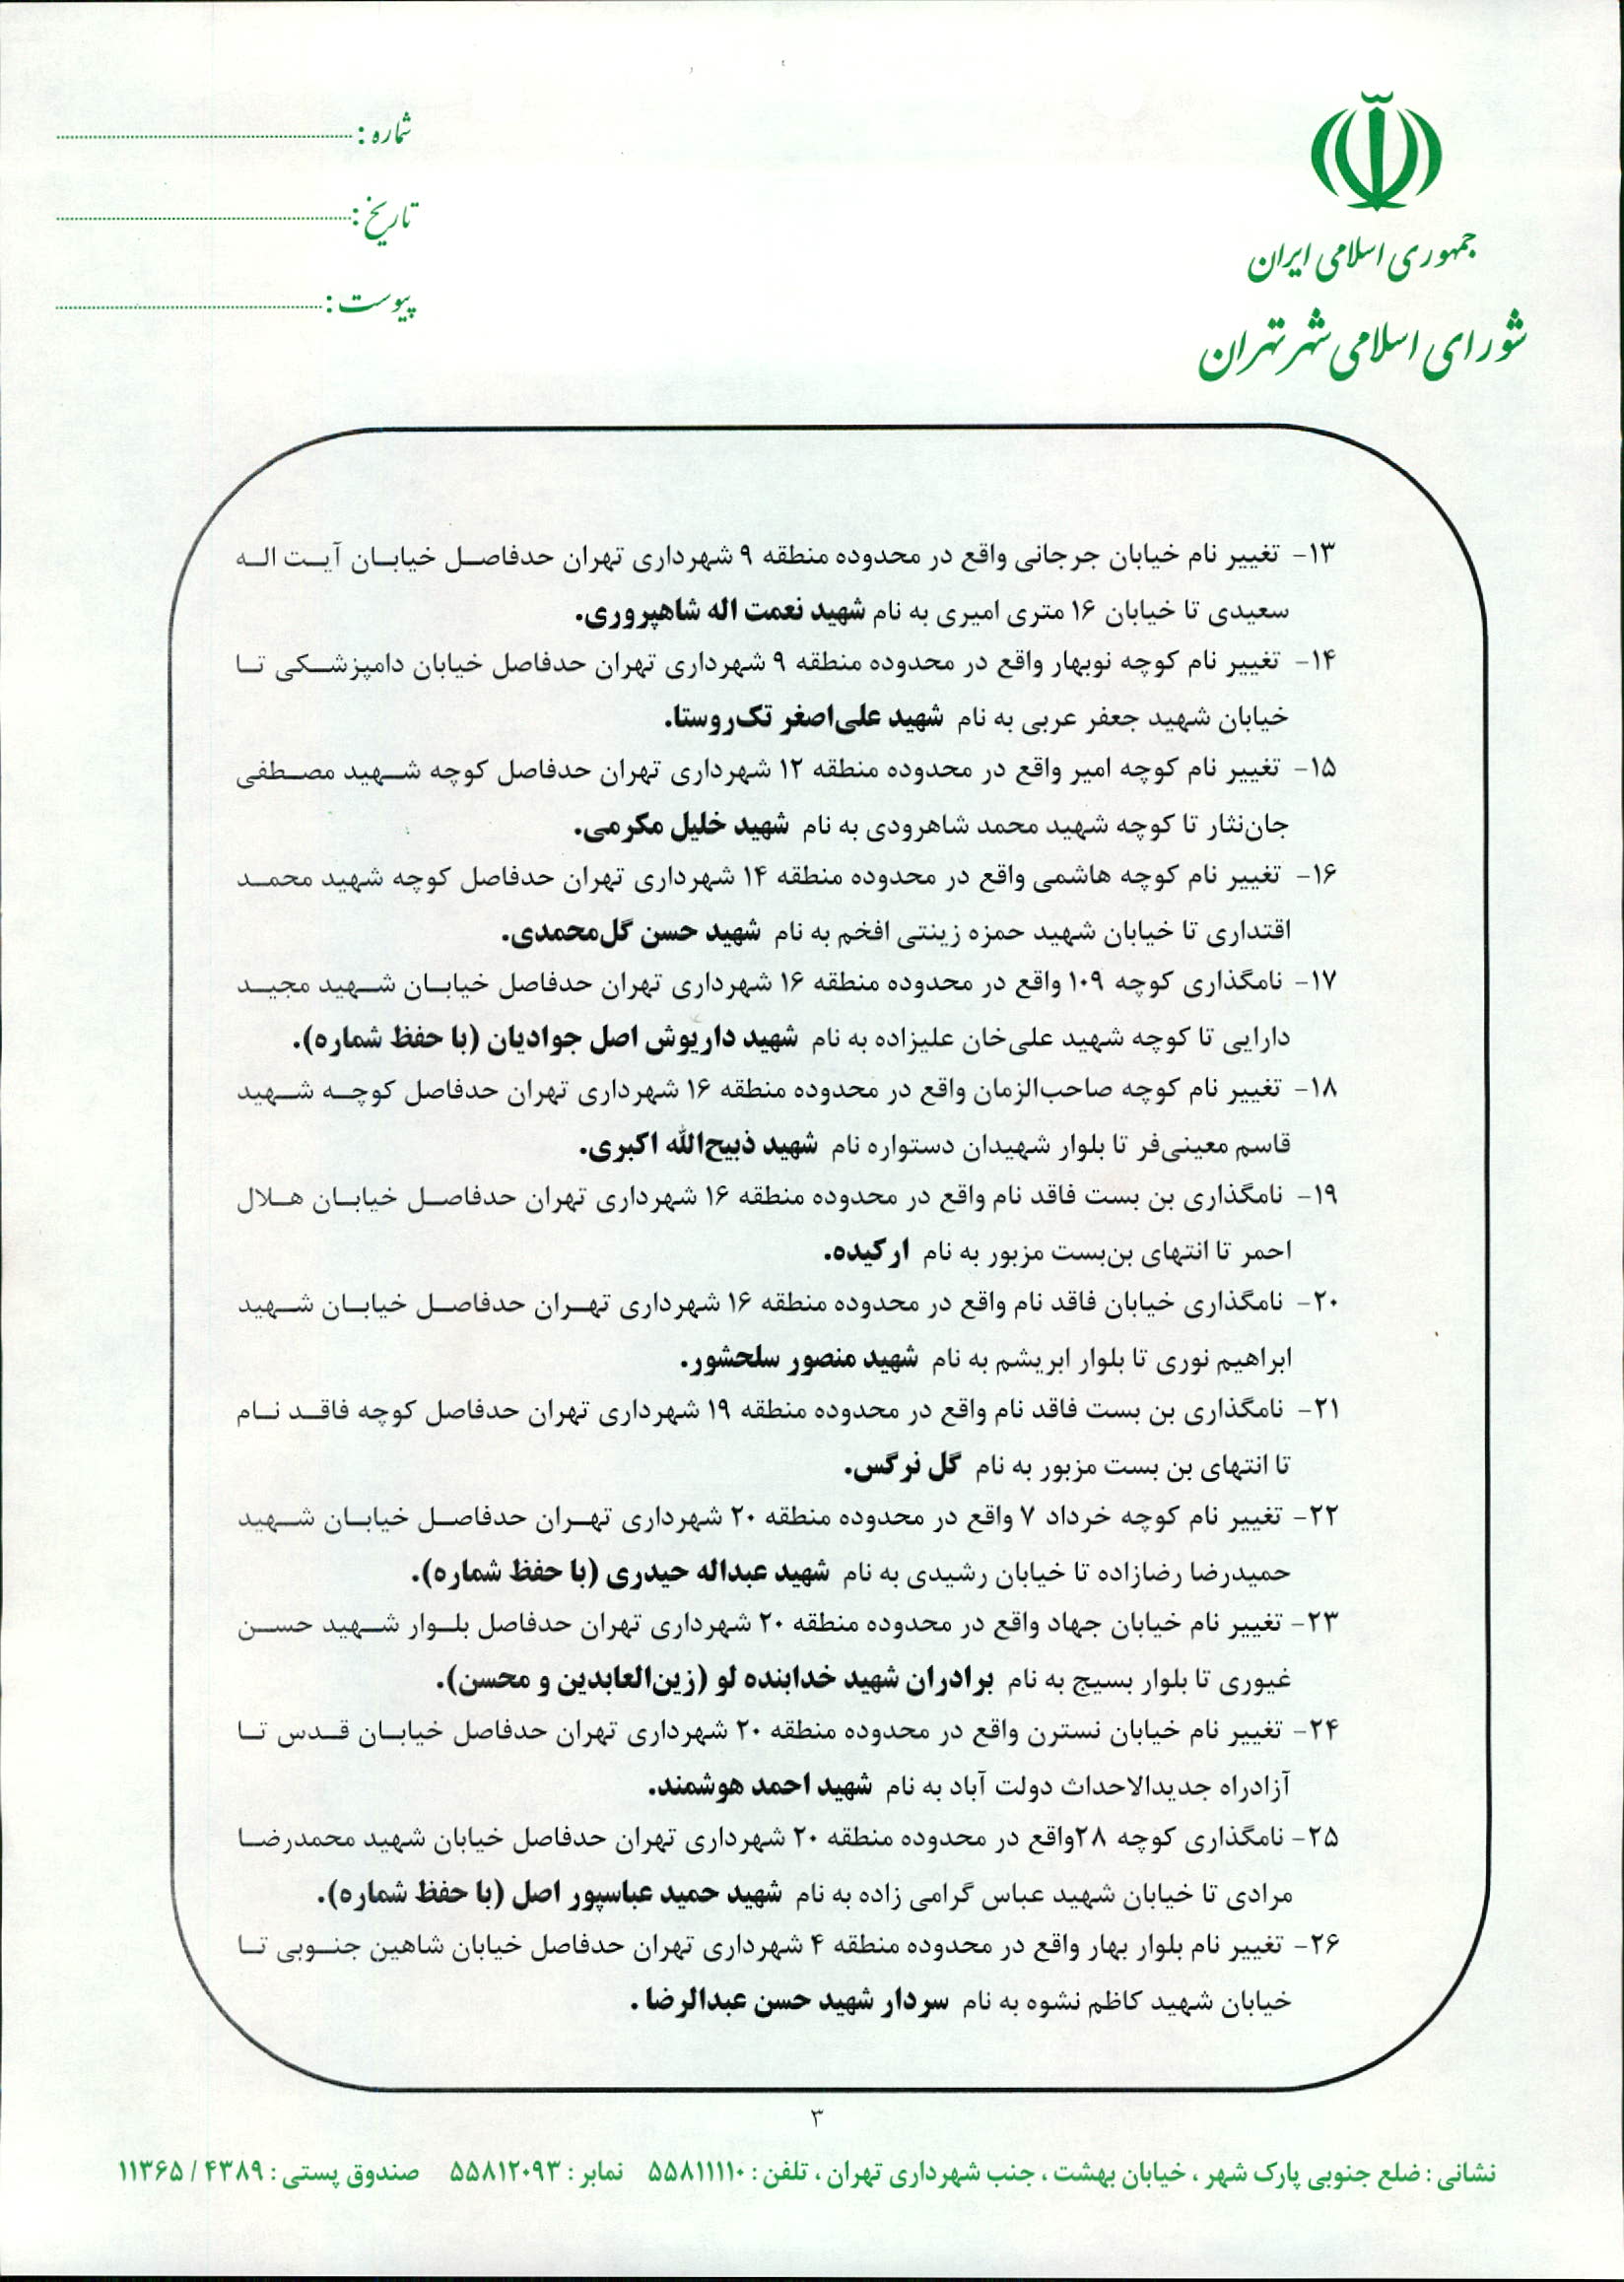 جمهوری اسلامی ایران
شورای اسلامی شهر تهران
شماره :
تاریخ :
پیوست :
۱۳- تغییر نام خیابان جرجانی واقع در محدوده منطقه ۹ شهرداری تهران حدفاصل خیابان آیت اله
سعیدی تا خیابان ۱۶ متری امیری به نام شهید نعمت اله شاهپروری.
۱۴- تغییر نام کوچه نوبهار واقع در محدوده منطقه ۹ شهرداری تهران حدفاصل خیابان دامپزشکی تا
خیابان شهید جعفر عربی به نام شهید علی‌اصغر تک‌روستا.
۱۵- تغییر نام کوچه امیر واقع در محدوده منطقه ۱۲ شهرداری تهران حدفاصل کوچه شهید مصطفی
جان‌نثار تا کوچه شهید محمد شاهرودی به نام شهید خلیل مکرمی.
۱۶- تغییر نام کوچه هاشمی واقع در محدوده منطقه ۱۴ شهرداری تهران حدفاصل کوچه شهید محمد
اقتداری تا خیابان شهید حمزه زینتی افخم به نام شهید حسن گل‌محمدی.
۱۷- نامگذاری کوچه ۱۰۹ واقع در محدوده منطقه ۱۶ شهرداری تهران حدفاصل خیابان شهید مجید
دارایی تا کوچه شهید علی‌خان علیزاده به نام شهید داریوش اصل جوادیان (با حفظ شماره).
۱۸- تغییر نام کوچه صاحب‌الزمان واقع در محدوده منطقه ۱۶ شهرداری تهران حدفاصل کوچه شهید
قاسم معینی‌فر تا بلوار شهیدان دستواره نام شهید ذبیح‌الله اکبری.
۱۹- نامگذاری بن بست فاقد نام واقع در محدوده منطقه ۱۶ شهرداری تهران حدفاصل خیابان هلال
احمر تا انتهای بن‌بست مزبور به نام ارکیده.
۲۰- نامگذاری خیابان فاقد نام واقع در محدوده منطقه ۱۶ شهرداری تهران حدفاصل خیابان شهید
ابراهیم نوری تا بلوار ابریشم به نام شهید منصور سلحشور.
۲۱- نامگذاری بن بست فاقد نام واقع در محدوده منطقه ۱۹ شهرداری تهران حدفاصل کوچه فاقد نام
تا انتهای بن بست مزبور به نام گل نرگس.
۲۲- تغییر نام کوچه خرداد ۷ واقع در محدوده منطقه ۲۰ شهرداری تهران حدفاصل خیابان شهید
حمیدرضا رضازاده تا خیابان رشیدی به نام شهید عبداله حیدری (با حفظ شماره).
۲۳- تغییر نام خیابان جهاد واقع در محدوده منطقه ۲۰ شهرداری تهران حدفاصل بلوار شهید حسن
غیوری تا بلوار بسیج به نام برادران شهید خدابنده لو (زین‌العابدین و محسن).
۲۴- تغییر نام خیابان نسترن واقع در محدوده منطقه ۲۰ شهرداری تهران حدفاصل خیابان قدس تا
آزادراه جدیدالاحداث دولت آباد به نام شهید احمد هوشمند.
۲۵- نامگذاری کوچه ۲۸واقع در محدوده منطقه ۲۰ شهرداری تهران حدفاصل خیابان شهید محمدرضا
مرادی تا خیابان شهید عباس گرامی زاده به نام شهید حمید عباسپور اصل (با حفظ شماره).
۲۶- تغییر نام بلوار بهار واقع در محدوده منطقه ۴ شهرداری تهران حدفاصل خیابان شاهین جنوبی تا
خیابان شهید کاظم نشوه به نام سردار شهید حسن عبدالرضا .
۳
نشانی : ضلع جنوبی پارک شهر ، خیابان بهشت ، جنب شهرداری تهران ، تلفن : ۵۵۸۱۱۱۱۰ نمابر : ۵۵۸۱۲۰۹۳ صندوق پستی : ۴۳۸۹ / ۱۱۳۶۵